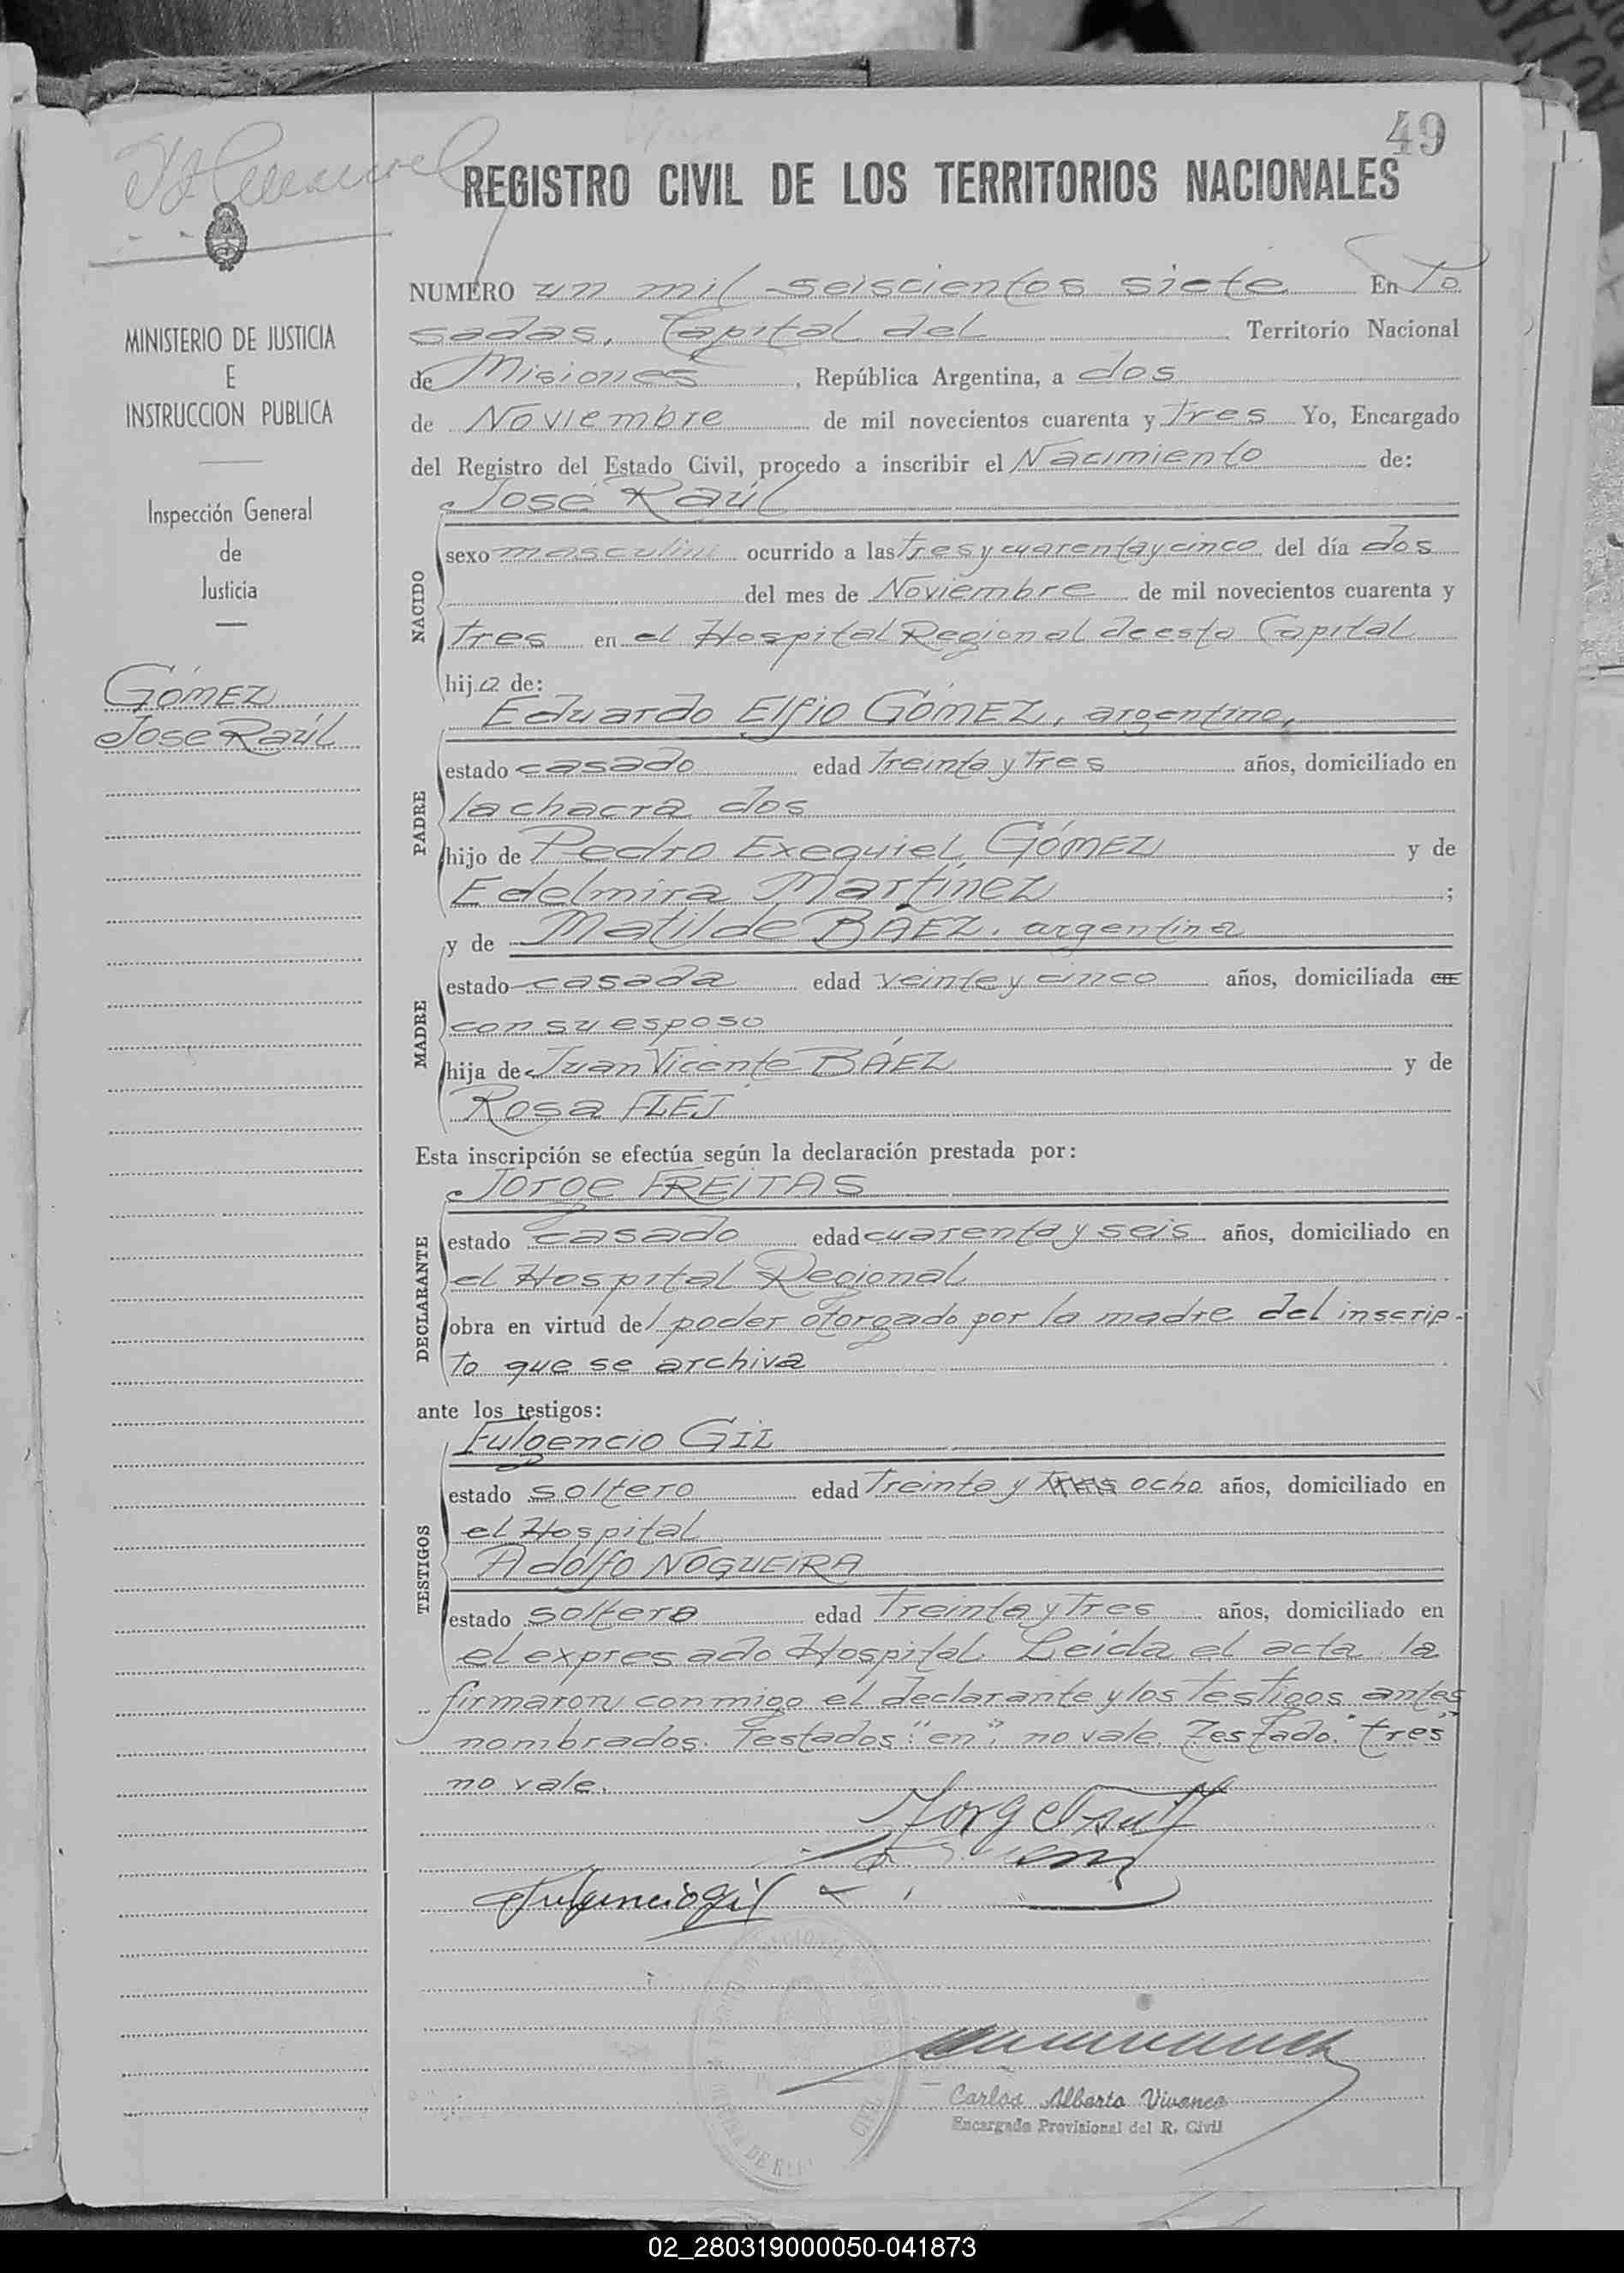 49
REGISTRO CIVIL DE LOS TERRITORIOS NACIONALES
MINISTERIO DE JUSTICIA
E
INSTRUCCION PUBLICA
Inspección General
de
Justicia
GÓMEZ
José Raúl
NUMERO un mil seiscientos siete En Po
sadas, Capital del Territorio Nacional
de Misiones, República Argentina, a dos
de Noviembre de mil novecientos cuarenta y tres Yo, Encargado
del Registro del Estado Civil, procedo a inscribir el Nacimiento de:
José Raúl
NACIDO
sexo masculino ocurrido a las tres y cuarenta y cinco del día dos
del mes de Noviembre de mil novecientos cuarenta y
tres en el Hospital Regional de esta Capital
hijo de:
Eduardo Elfio GÓMEZ, argentino,
PADRE
estado casado edad treinta y tres años, domiciliado en
la chacra dos
hijo de Pedro Exequiel GÓMEZ y de
Edelmira Martínez ;
y de Matilde BÁEZ, argentina
MADRE
estado casada edad veinte y cinco años, domiciliada en
con su esposo
hija de Juan Vicente BÁEZ y de
Rosa
Esta inscripción se efectúa según la declaración prestada por:
Jorge FREITAS
DECLARANTE
estado casado edad cuarenta y seis años, domiciliado en
el Hospital Regional
obra en virtud del poder otorgado por la madre del inscrip-
to que se archiva
ante los testigos:
Fulgencio GIL
TESTIGOS
estado soltero edad treinta y tres ocho años, domiciliado en
el Hospital
Adolfo NOGUEIRA
estado soltero edad treinta y tres años, domiciliado en
el expresado Hospital. Leída el acta la
firmaron conmigo el declarante y los testigos antes
nombrados. Testados: "en", no vale. Testado: "tres"
no vale.
Fulgencio Gil
Carlos Alberto Vivanco
Encargado Provisional del R. Civil
02_280319000050-041873